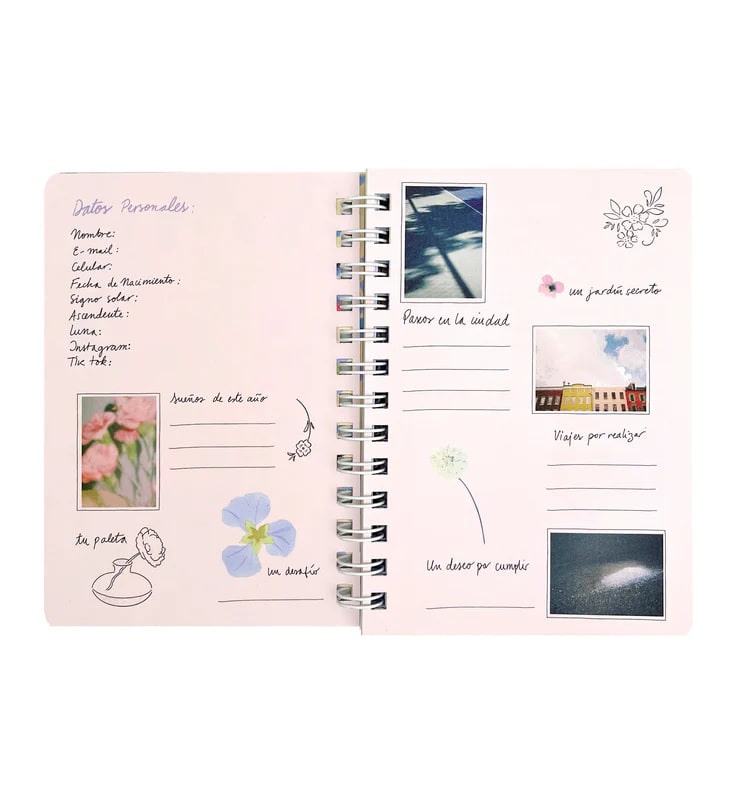 Datos Personales:
Nombre:
E-mail:
Celular:
Fecha de Nacimiento:
Signo solar:
Ascendente:
Luna:
Instagram:
Tik tok:
sueños de este año
tu paleta
un desafío
Paseos en la ciudad
un jardín secreto
Viajes por realizar
Un deseo por cumplir